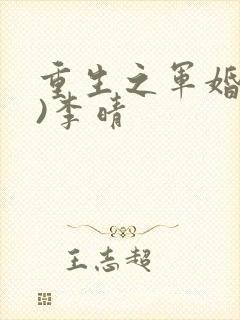 重生之军婚
)李晴
王志超